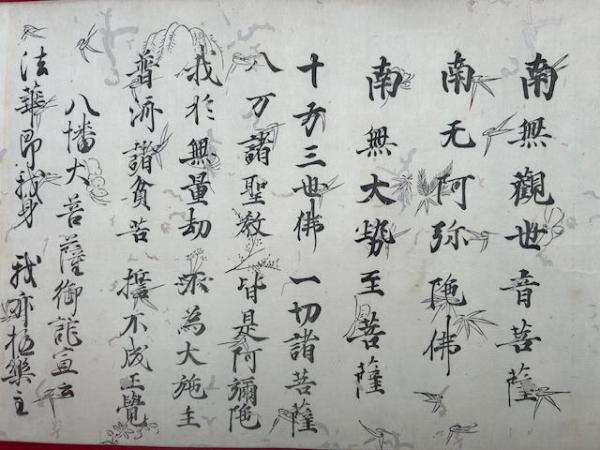 南無觀世音菩薩
南无阿弥陁佛
南無大勢至菩薩
十方三世佛 一切諸菩薩
八万諸聖教 皆是阿彌陁
我於無量劫 不為大施主
普濟諸貧苦 不成正覺
八幡大菩薩御託宣云
法華即我身 我亦極樂主